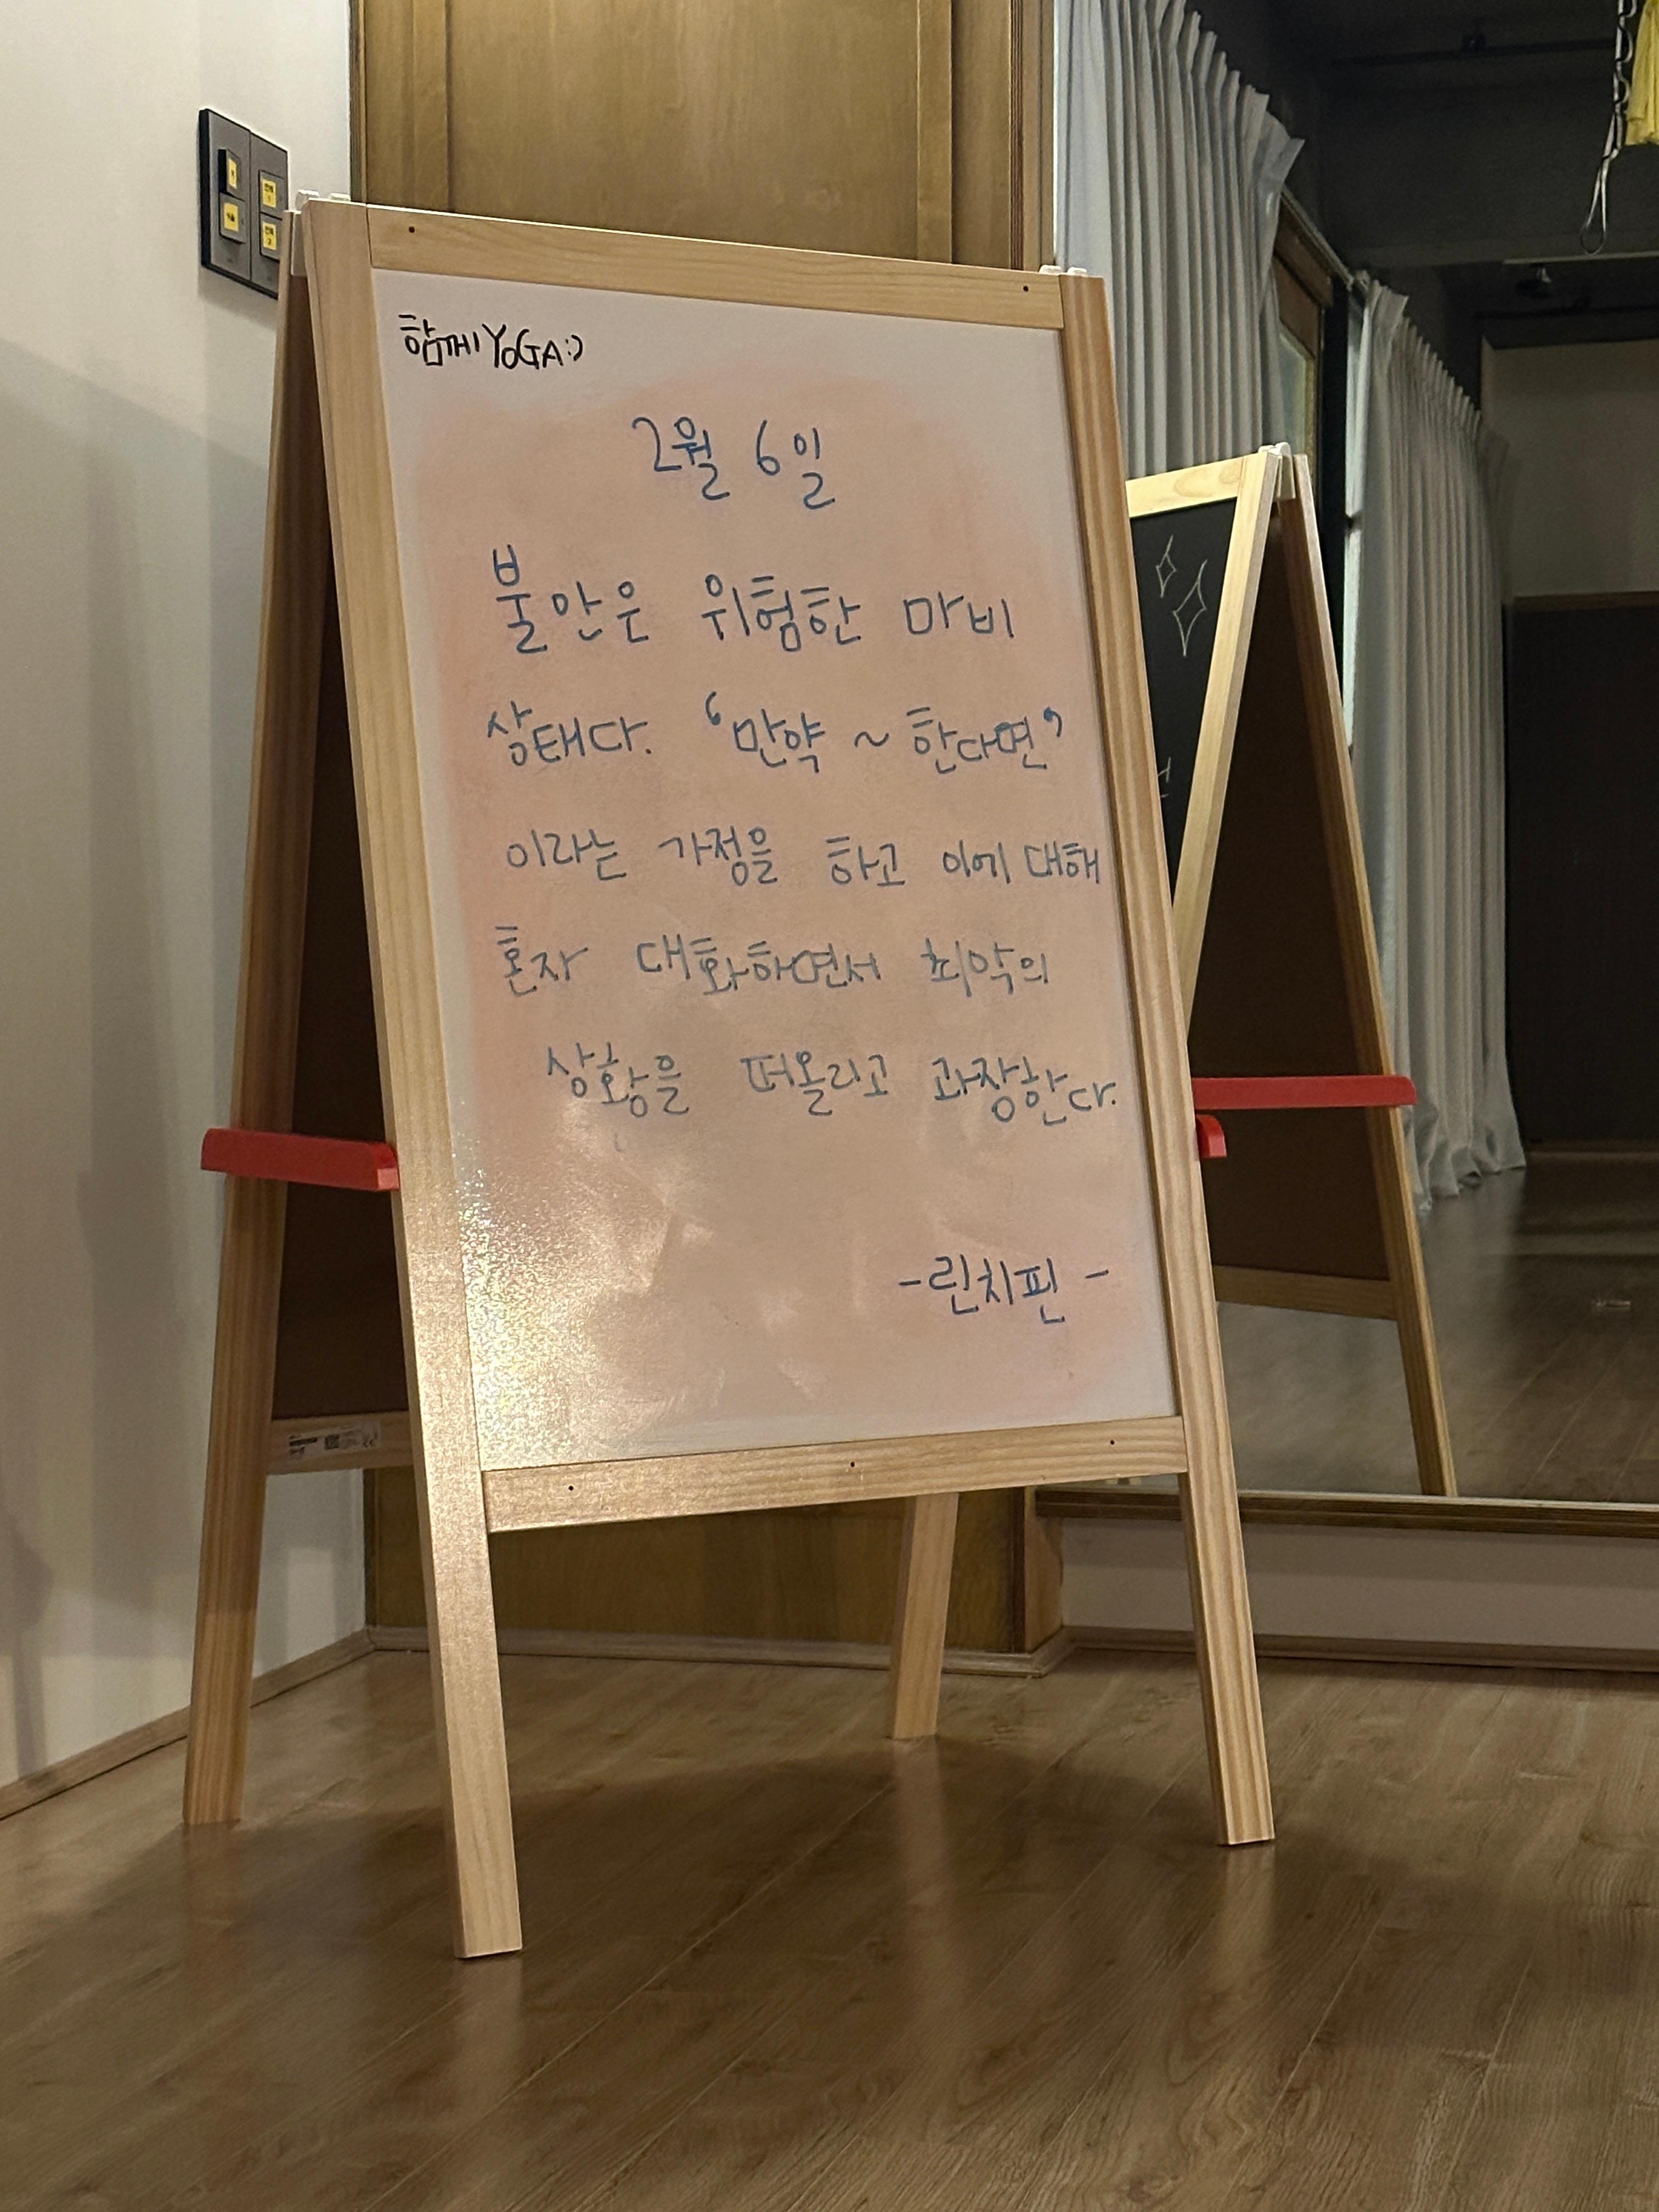 함께 YOGA:)
2월 6일
불안은 위험한 마비
상태다. ‘만약 ~ 한다면’
이라는 가정을 하고 이에 대해
혼자 대화하면서 최악의
상황을 떠올리고 과장한다.
-린치핀-